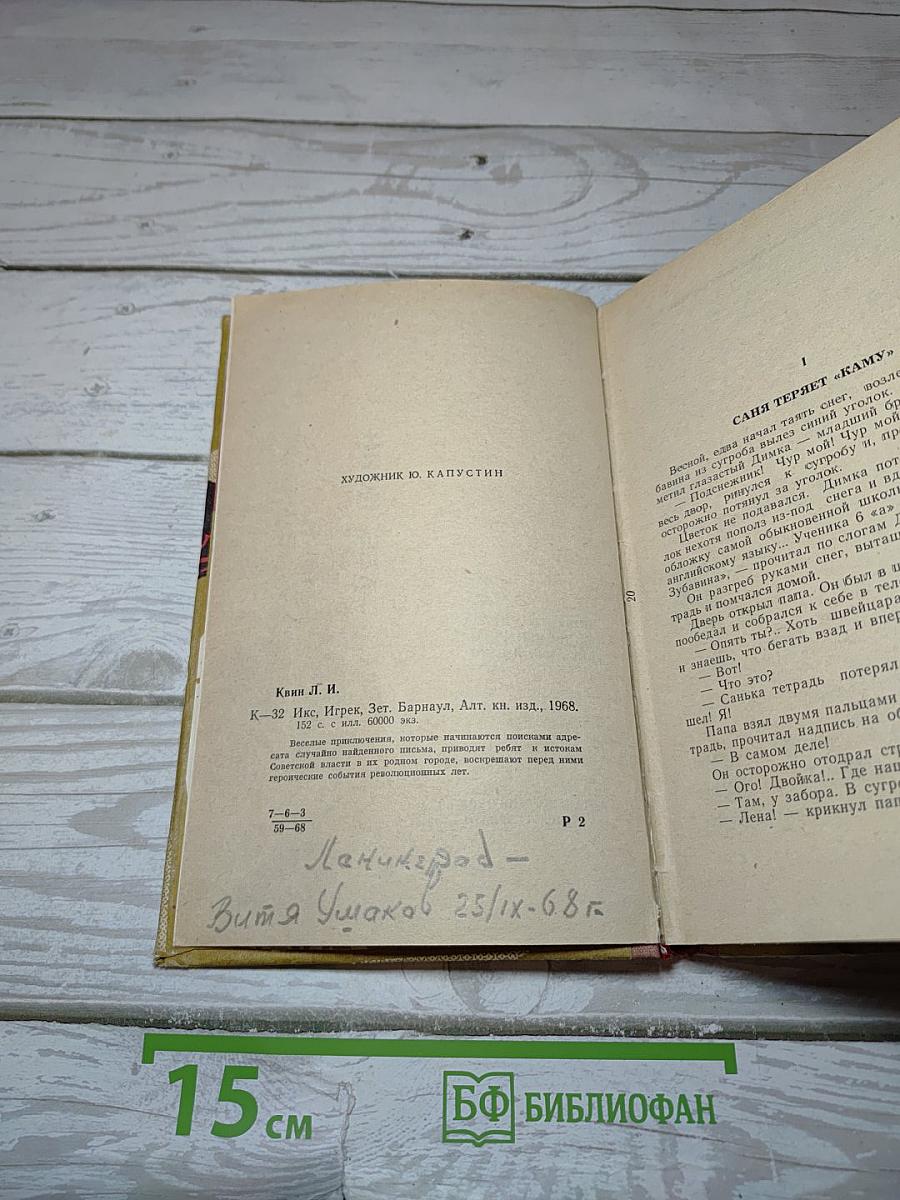 ХУДОЖНИК Ю. КАПУСТИН
Квин Л. И.
К—32 Икс, Игрек, Зет. Барнаул, Алт. кн. изд., 1968.
152 с. с илл. 60000 экз.
Веселые приключения, которые начинаются поисками адре-
сата случайно найденного письма, приводят ребят к истокам
Советской власти в их родном городе, воскрешают перед ними
героические события революционных лет.
7—6—3
59—68
Р 2
Ленинград —
Витя Ушаков 25/IX-68 г.
20
1
САНЯ ТЕРЯЕТ «КАМУ»
Весной, едва начал таять снег, возле
бавина из сугроба вылез синий уголок.
метил глазастый Димка — младший бр
— Подснежник! Чур мой! Чур мой
весь двор, ринулся к сугробу и, пр
осторожно потянул за уголок.
Цветок не подавался. Димка пот
лок нехотя пополз из-под снега и вд
обложку самой обыкновенной школь
английскому языку... Ученика 6 «а»
Зубавина», — прочитал по слогам Д
Он разгреб руками снег, выташ
традь и помчался домой.
Дверь открыл папа. Он был в ш
пообедал и собрался к себе в теле
— Опять ты?.. Хоть швейцара
и знаешь, что бегать взад и впер
— Вот!
— Что это?
— Санька тетрадь потерял
шел! Я!
Папа взял двумя пальцами
традь, прочитал надпись на об
— В самом деле!
Он осторожно отодрал стр
— Ого! Двойка!.. Где наш
— Там, у забора. В сугр
— Лена! — крикнул пап
15 см
БФ БИБЛИОФАН